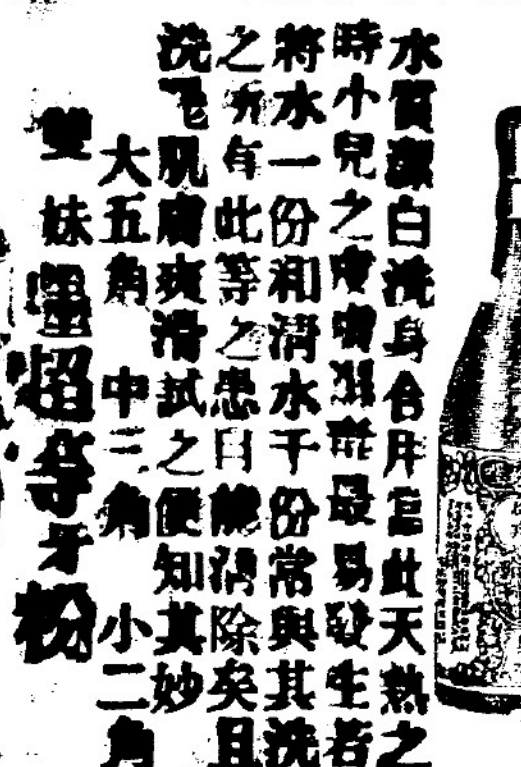 水質潔白洗身合用當此天熱之
時小兒之皮膚最易發生若
將水一份和清水千份常與其洗
之所有此等之患自能消除矣且
洗完肌膚爽滑試之便知其妙
大五角 中三角 小二角
雙妹嚜超等牙粉